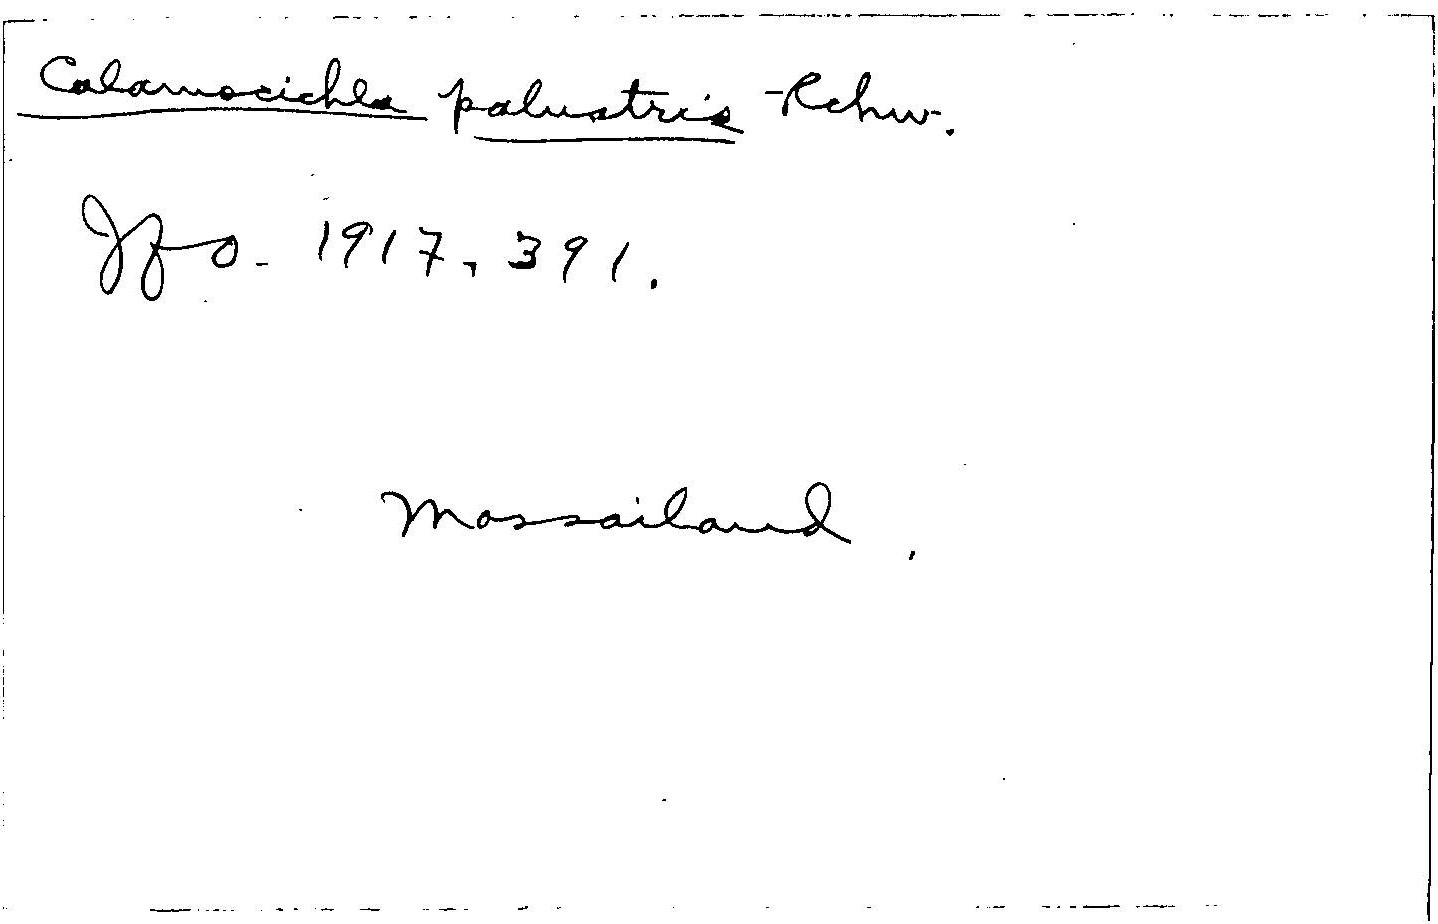 Calamocichla palustris Rchw.
JfO. 1917, 391.
Massailand.